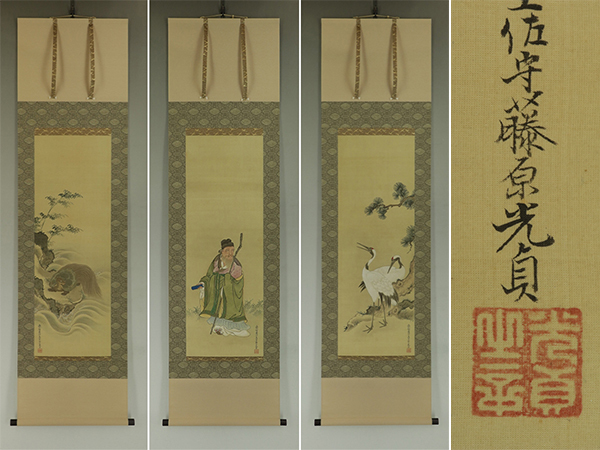 土佐守藤原光貞
光貞